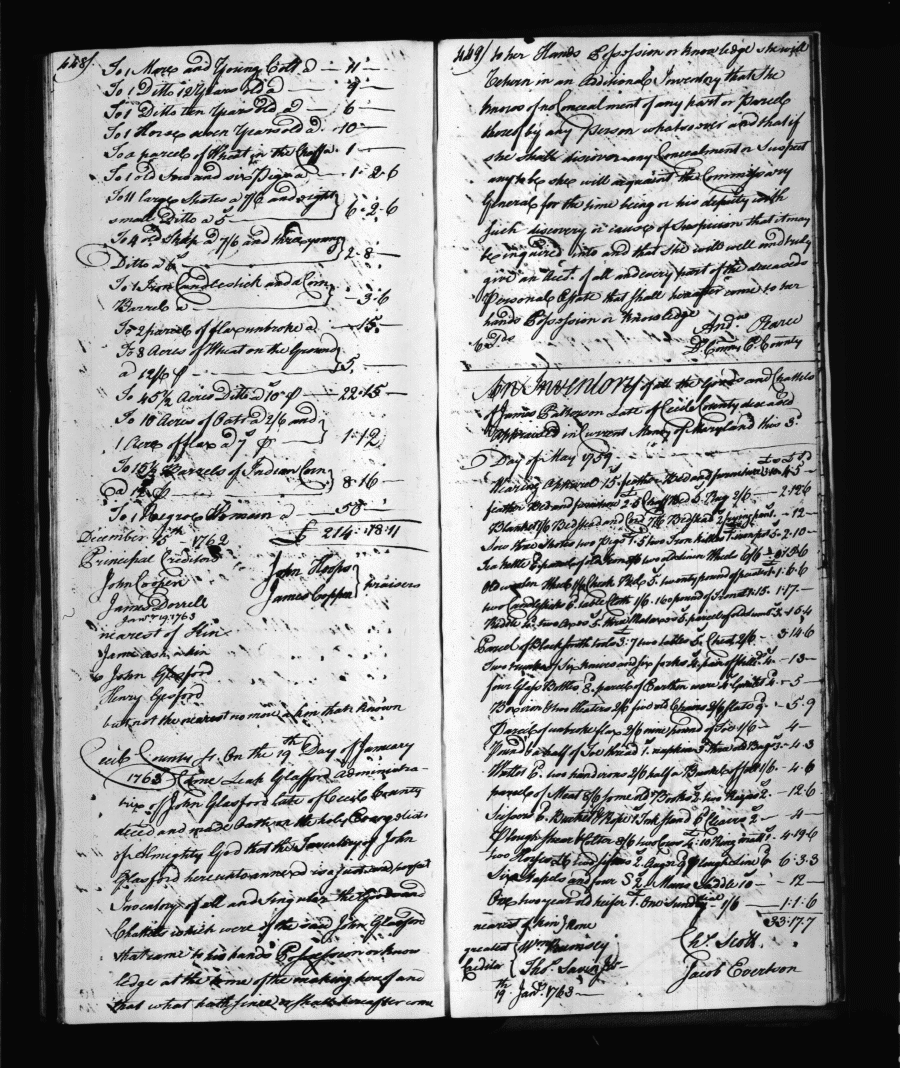 448/
To 1 Mare and Young Colt @ — 11 —
To 1 Ditto 12 Years old @ — 9 —
To 1 Ditto ten Years old @ — 6 —
To 1 Horse seven Years old @ - 10 —
To a parcel of Wheat in the Chaffe - 1 —
To 1 old Sow and six Pigs @ — 1-2-6
To 11 large Shotes a 7/6 and eight
small Ditto a 5 — 6-2-6
To 4 old Sheep @ 7/6 and three young
Ditto a 6 — 2-8-
To 1 Iron Candlestick and a Corn
Barrel @ — -3-6
To 2 parcel of flax unbroke @ — -15-
To 8 Acres of Wheat on the Ground
a 12/6 P — 5-
To 45 1/2 Acres Ditto a 10 P — 22-15-
To 10 Acres of Oats @ 2/6 and
1 Acre of flax @ 7 P — 1-12
To 15 1/2 Barrels of Indian Corn
@ 12 P — 8-16-
To 1 Negroe Woman @ — 50-
December 15th 1762 £ 214-18-11
Principal Creditors
John Cooper
James Dorrell
Janry 19 1763
John Hoops
James Coppen } praisers
nearest of Kin
James as a kin
John Glasford
Henry Glasford
but not the nearest no more a kin that's known
Cecil County ss. On the 19th Day of January
1763 Came Leah Glassford Administra-
trix of John Glasford late of Cecil County
deced and made Oath on the holy Evangelists
of Almighty God that the Inventory of John
Glasford hereunto annexed is a just and perfect
Inventory of all and Singular the Goods and
Chattels which were of the said John Glasford
that came to his hands Possession or know
ledge at the time of the making hereof and
that what hath since or shall hereafter come
449/ to her Hands Possession or knowledge she will
Return in an Additional Inventory that she
knows of no Concealment of any part or Parcel
thereof by any Person whatsoever and that if
she shall discover any Concealment or Suspect
any to be she will acquaint the Commissary
General for the time being or his deputy with
such discovery or cause of Suspicion that it may
be inquired into and that she will well and truly
give an Acct. of all and every part of the deceaseds
Personal Estate that shall hereafter come to her
hands Possession or knowledge
Andw Pearce
Dy Commy C. County
An Inventory of all the Goods and Chattels
of James Patterson Late of Cecil County deceased
Appraised in Current Money of Maryland this 3d
Day of May 1759
Wearing Apparel 15 feather Bed and furniture - 4-5-
feather Bed and furniture 2-5 Chaff Bed 5. Rug 2/6 — 2-12-6
Blanket 1/6 Bedstead and Cord 7/6 Bedstead — -12-
Sow three Shotes two Pigs 1-5 two Iron kettles — 2-10-
Tea kettle parcel of old Iron two old Linen Wheels 6/6
Old woolen Wheel 1/6 Check Reel 5. twenty pound of — 1-6-6
two Candlesticks 6. table Cloth 1/6. 160 pound of Iron at 1-15. 1-17-
Kettle two Axes 5. three Mattocks 5. parcel of old
Parcel of Blacksmith tools 3-7 two tables 5. Chest 2/6 — 3-14-6
Two trunks six knives and six forks 4. pair of — -13-
four Glass Bottles 8. parcel of Earthen ware 4 — -5-
2/6 five old Chairs 2/6 — -5-9
Parcel of unbroke flax 2/6 nine pound of Tow 1/6 — -4-
Pound & a half of Tow thread 1. napkin 3 three old Bags 3 - 4-3
Wallet 6. two hand irons 2/6 half a Bushel of Salt 1/6 - 4-6
parcel of Meat 8/6 some old Books 2 two Razors 2. — -12-6
Scissors 6. Bucket & Rope 1 Ink Stand 6 Cleaver 2 — -4-
Plough Shear & Colter 3/6 two Cows 4-10
two Horses — 6-3-3
Six Staples and four Mans Saddle 10 — -12-
One two year old heifer 1. One 1/6 — 1-1-6
33-17-7
nearest of kin } None
greatest Creditor { Wm Rumsey
Thos. Savin Jr.
Chs. Scott.
Jacob Evertson
19th Janry 1763 —